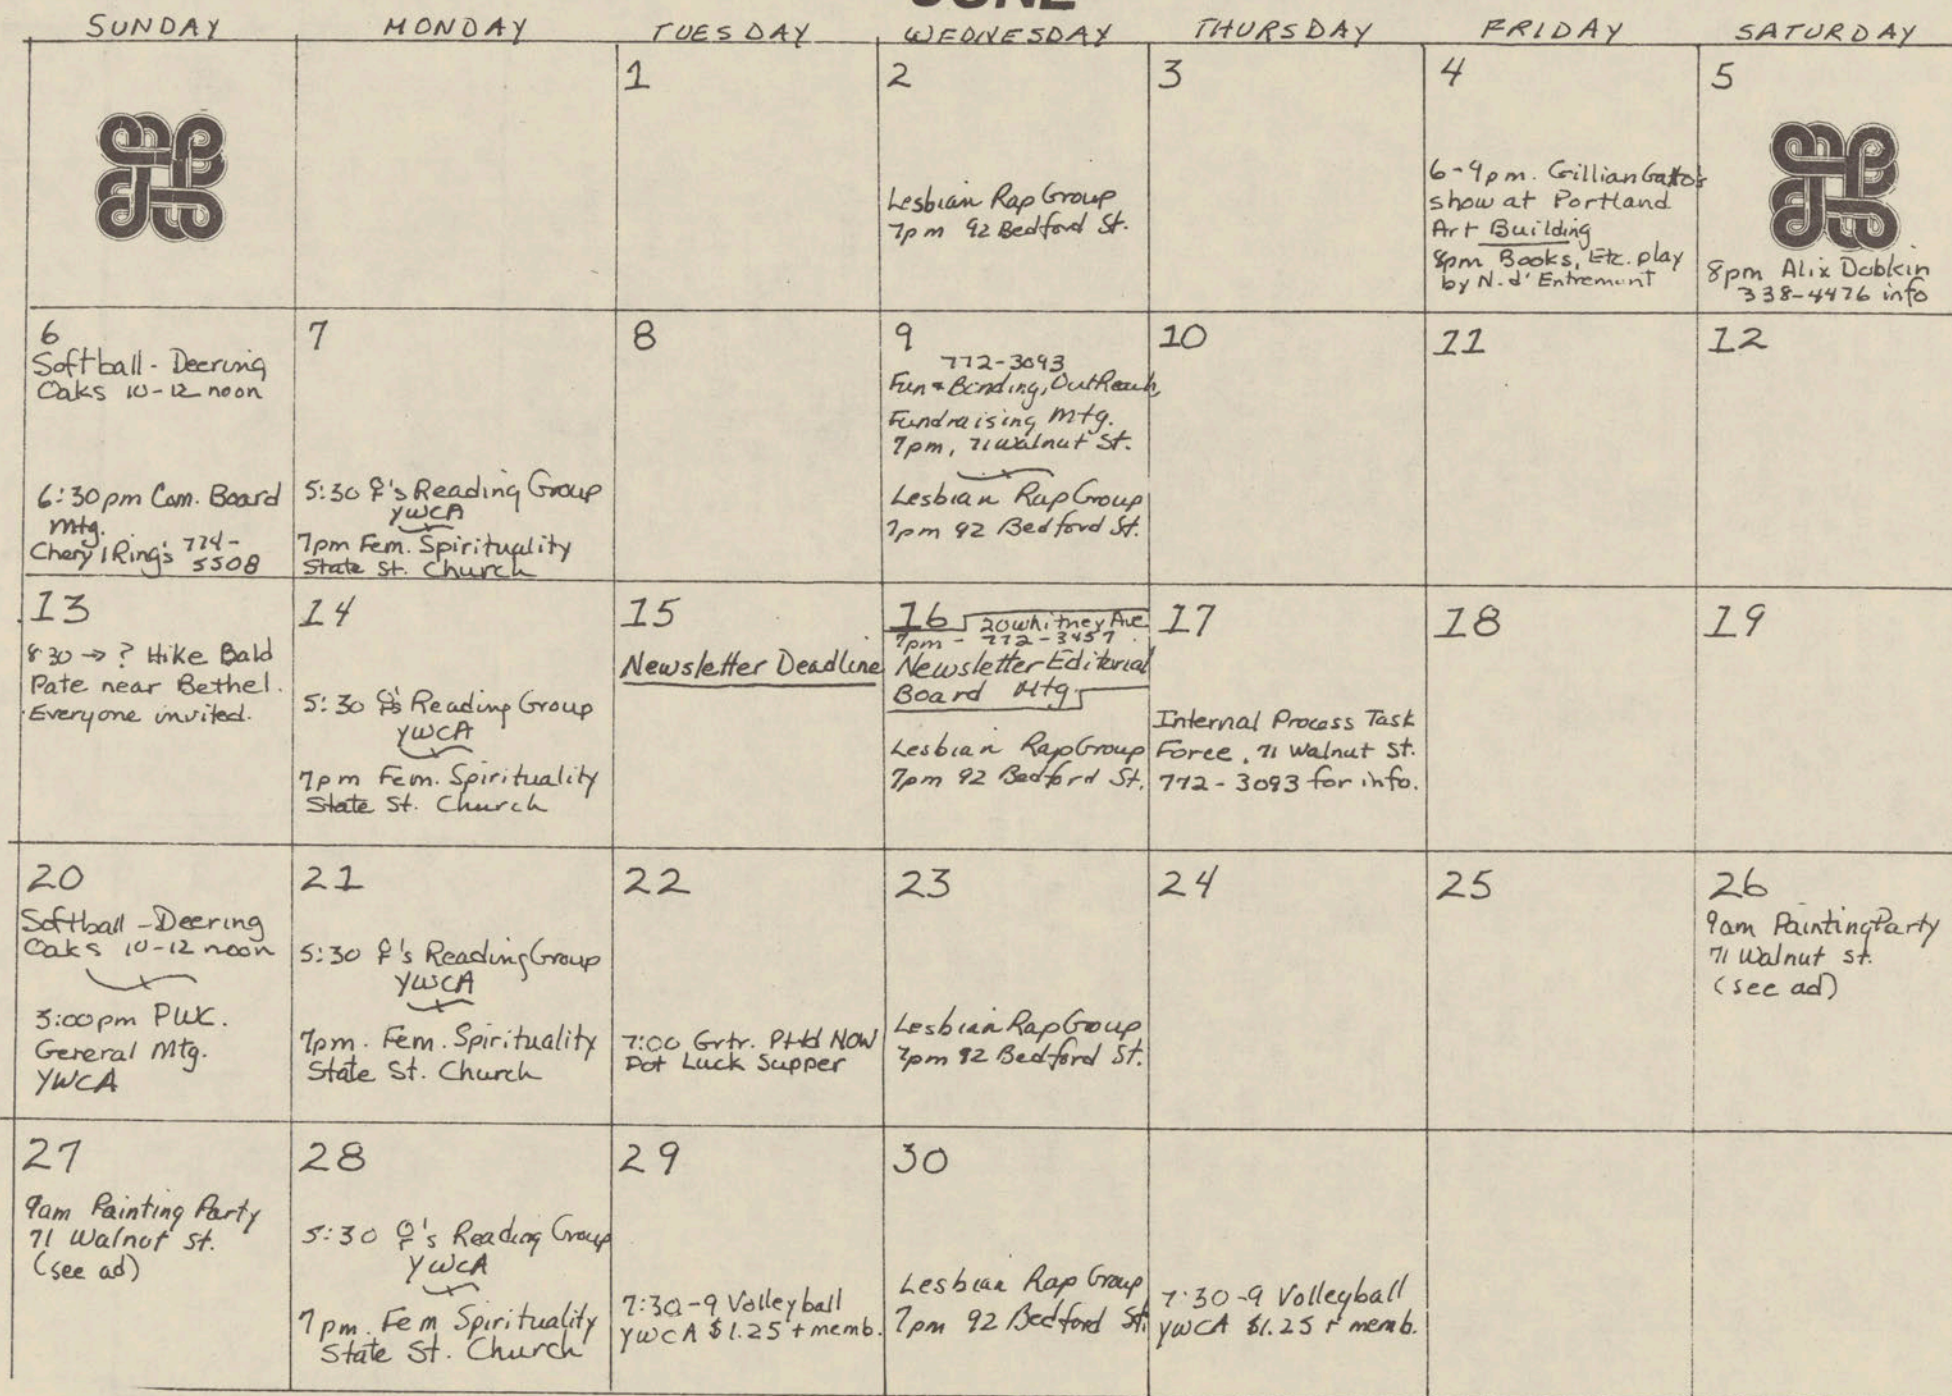 JUNE
SUNDAY MONDAY TUESDAY WEDNESDAY THURSDAY FRIDAY SATURDAY
1
2
Lesbian Rap Group
7pm 92 Bedford St.
3
4
6-9pm. Gillian Gatto's
show at Portland
Art Building
8pm Books, Etc. play
by N. d'Entremont
5
8pm Alix Dobkin
338-4476 info
6
Softball - Deering
Oaks 10-12 noon
6:30pm Com. Board
Mtg.
Cheryl Ring's 774-
5508
7
5:30 ♀'s Reading Group
YWCA
7pm Fem. Spirituality
State St. Church
8
9
772-3093
Fun + Bonding, OutReach,
Fundraising Mtg.
7pm, 71 Walnut St.
Lesbian Rap Group
7pm 92 Bedford St.
10
11
12
13
8:30 → ? Hike Bald
Pate near Bethel.
Everyone invited.
14
5:30 ♀'s Reading Group
YWCA
7pm Fem. Spirituality
State St. Church
15
Newsletter Deadline
16 20 Whitney Ave
7pm - 772-3457
Newsletter Editorial
Board Mtg
Lesbian Rap Group
7pm 92 Bedford St.
17
Internal Process Task
Force, 71 Walnut St.
772-3093 for info.
18
19
20
Softball - Deering
Oaks 10-12 noon
5:00pm PWC.
General Mtg.
YWCA
21
5:30 ♀'s Reading Group
YWCA
7pm. Fem. Spirituality
State St. Church
22
7:00 Grtr. Ptld NOW
Pot Luck Supper
23
Lesbian Rap Group
7pm 92 Bedford St.
24
25
26
9am Painting Party
71 Walnut St.
(see ad)
27
9am Painting Party
71 Walnut St.
(see ad)
28
5:30 ♀'s Reading Group
YWCA
7pm. Fem Spirituality
State St. Church
29
7:30-9 Volleyball
YWCA $1.25 + memb.
30
Lesbian Rap Group
7pm 92 Bedford St.
7:30-9 Volleyball
YWCA $1.25 + memb.